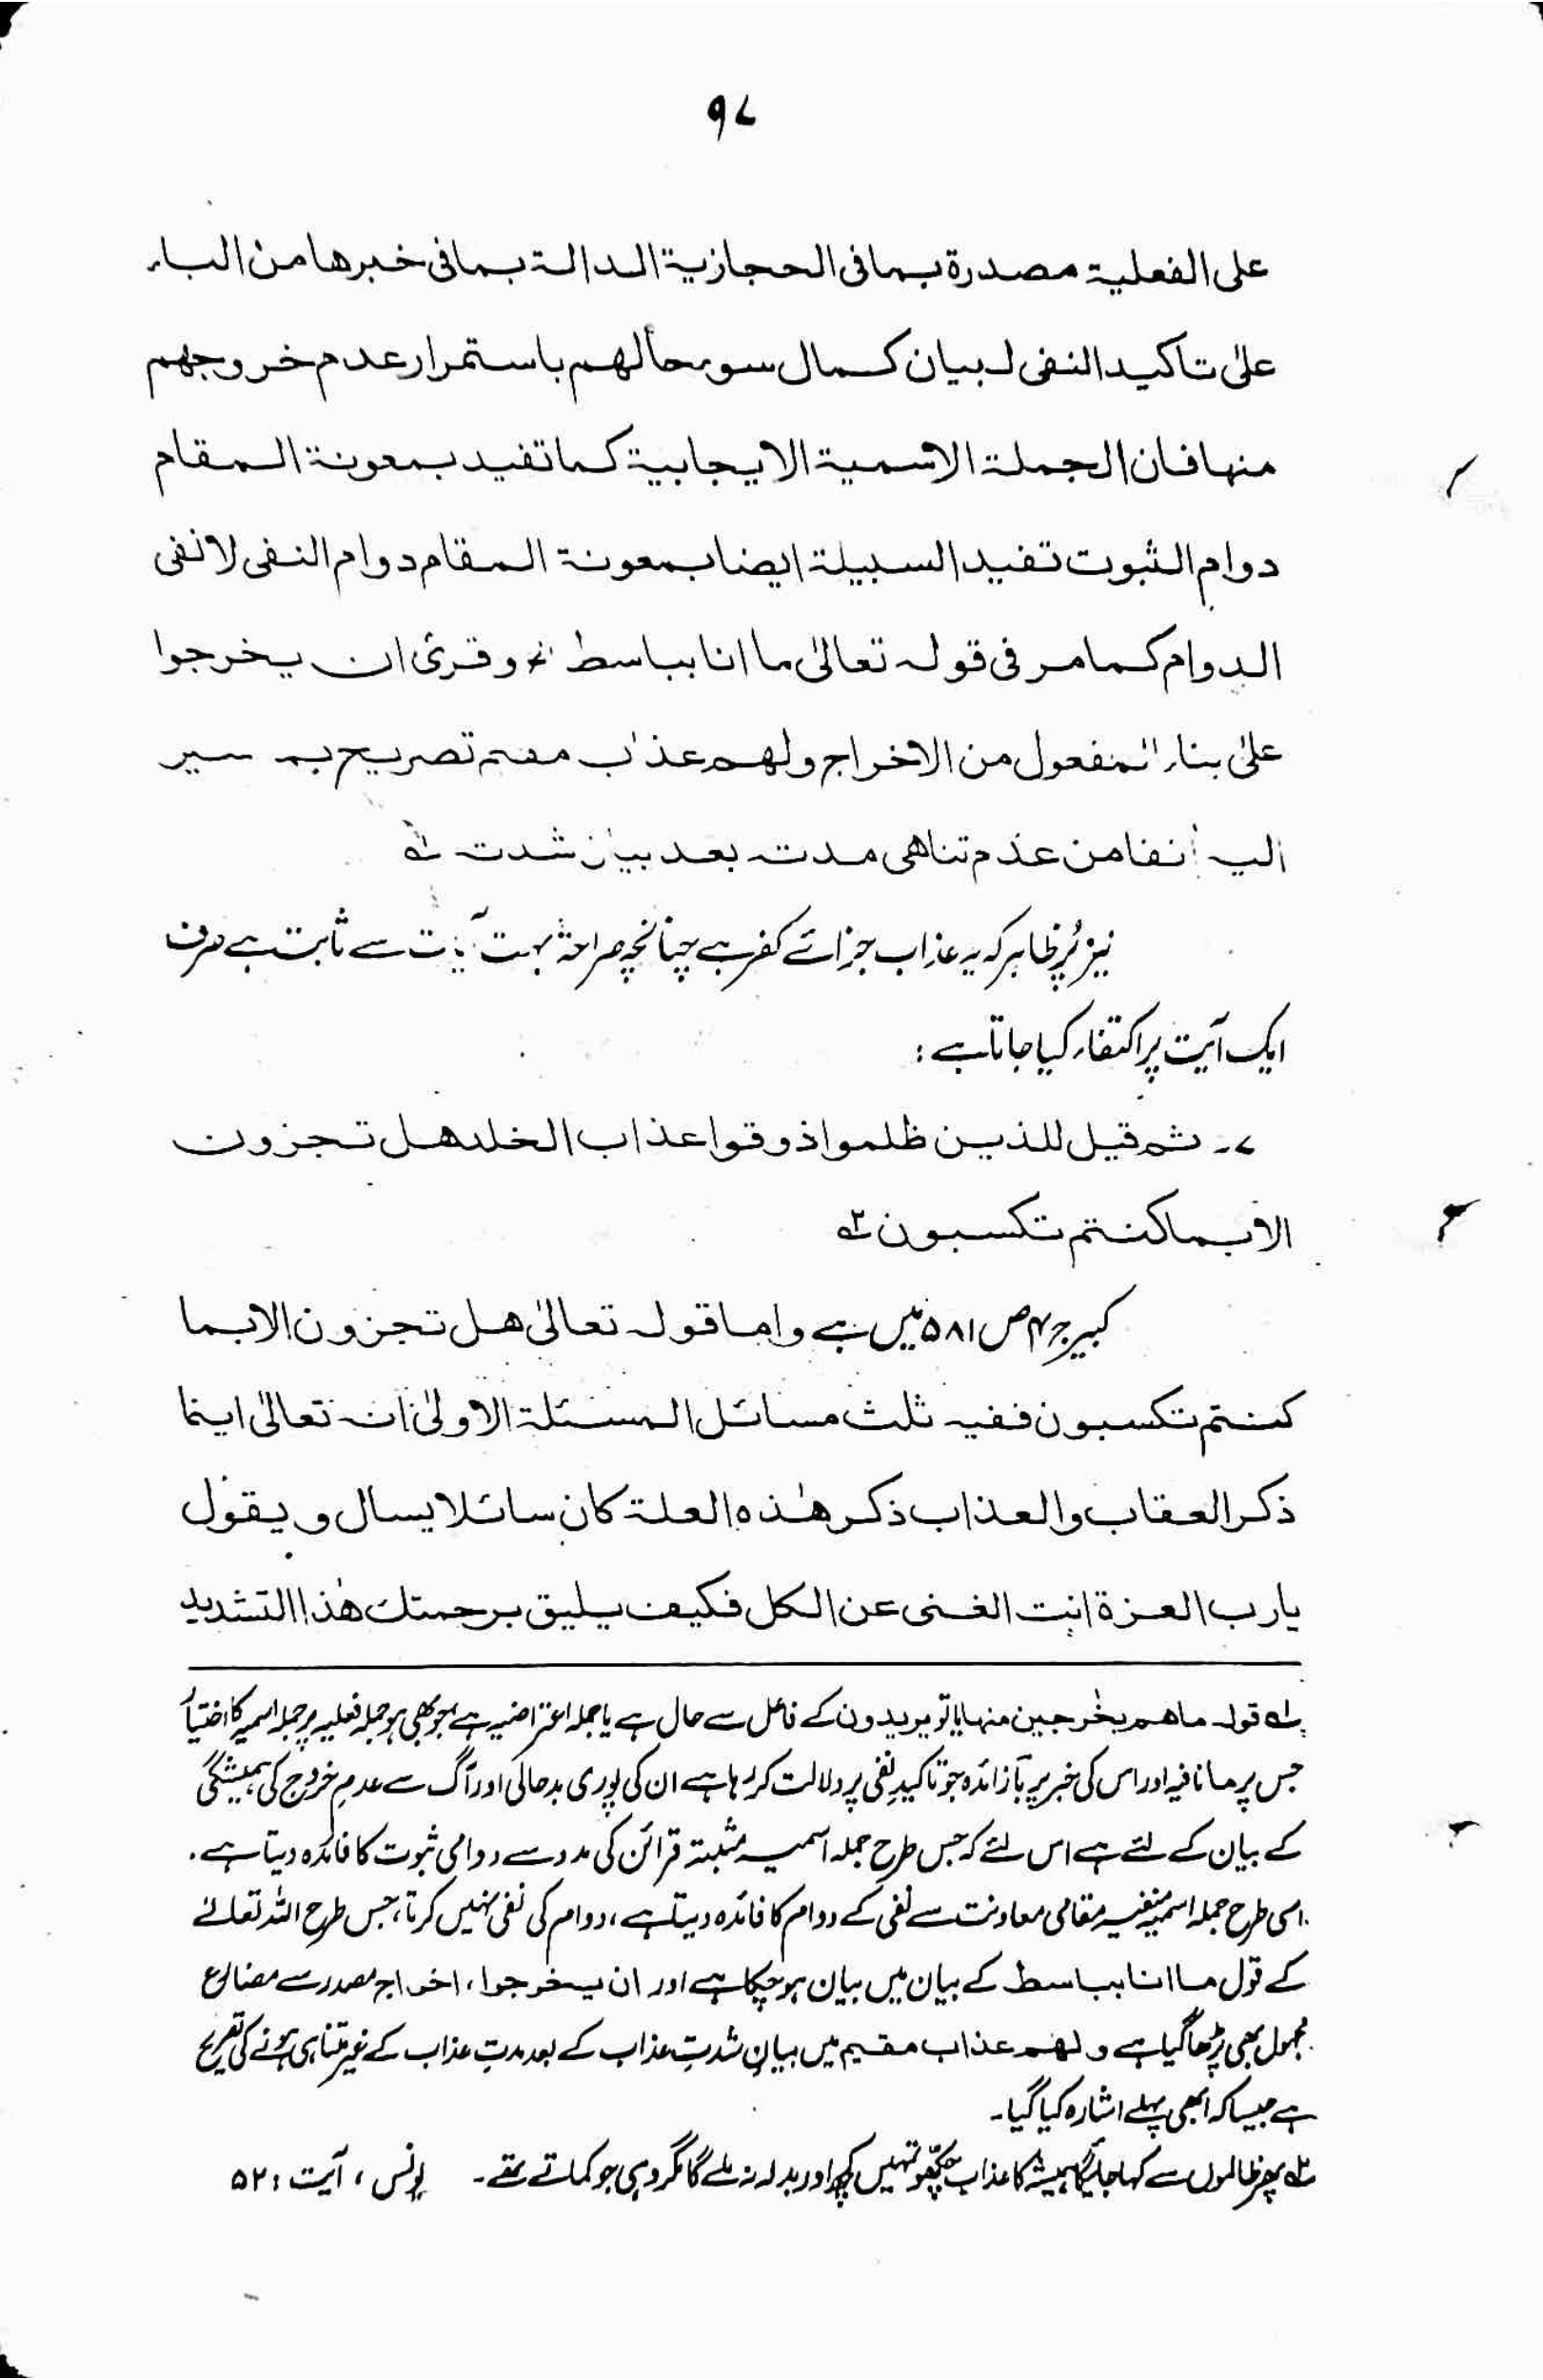 ۹۷
على الفعلية مصدرة بما فى الحجازية الدالة بما فى خبرها من الباء
علىٰ تاكيد النفى لبيان كمال سوء حالهم باستمرار عدم خروجهم
منها فان الجملة الاسمية الايجابية كما تفيد بمعونة المقام
دوام الثبوت تفيد السبيلة ايضا بمعونة المقام دوام النفى لا نفى
الدوام كما مر فى قوله تعالىٰ ما انا بباسط الخ وقرئ ان يخرجوا
علىٰ بناء المفعول من الاخراج ولهم عذاب مقيم تصريح بم سير
اليه أنفا من عدم تناهى مدته بعد بيان شدته لـه
نیز پُر ظاہر کہ یہ عذاب جزائے کفر ہے چنانچہ صراحۃً بہت آیات سے ثابت ہے صرف
ایک آیت پر اکتفاء کیا جاتا ہے :
۷۔ ثم قيل للذين ظلموا ذوقوا عذاب الخلد هل تجزون
الا بما كنتم تكسبون ٢ـه
کبیر ج ۴ ص ۵۸۱ میں ہے واما قوله تعالىٰ هل تجزون الا بما
كنتم تكسبون ففيه ثلث مسائل المسئلة الاولىٰ انه تعالىٰ اينما
ذكر العقاب والعذاب ذكر هٰذه العلة كان سائلا يسال ويقول
يا رب العزة انت الغنى عن الكل فكيف يليق برحمتك هٰذا التشديد
لـه قوله ما هم بخٰرجين منها یا تو یریدون کے فاعل سے حال ہے یا جملہ اعتراضیہ ہے جو بھی ہو جملہ فعلیہ پر جملہ اسمیہ کا اختیار
جس پر ما نافیہ اور اس کی خبر پر بآ زائدہ جو تاکیدِ نفی پر دلالت کر رہا ہے ان کی پوری بدحالی اور آگ سے عدمِ خروج کی ہمیشگی
کے بیان کے لئے ہے اس لئے کہ جس طرح جملہ اسمیہ مثبتہ قرائن کی مدد سے دوامی ثبوت کا فائدہ دیتا ہے۔
اسی طرح جملہ اسمیہ منفیہ مقامی معاونت سے نفی کے دوام کا فائدہ دیتا ہے، دوام کی نفی نہیں کرتا، جس طرح اللہ تعالےٰ
کے قول ما انا بباسط کے بیان میں بیان ہو چکا ہے اور ان یخرجوا، اخراج مصدر سے مضارع
مجہول بھی پڑھا گیا ہے و لهم عذاب مقيم میں بیانِ شدتِ عذاب کے بعد مدتِ عذاب کے غیر متناہی ہونے کی تصریح
ہے جیسا کہ ابھی پہلے اشارہ کیا گیا۔
٢ـه پھر ظالموں سے کہا جائیگا ہمیشہ کا عذاب چکھو تمہیں کچھ اور بدلہ نہ ملے گا مگر وہی جو کماتے تھے۔ یونس ، آیت : ۵۲